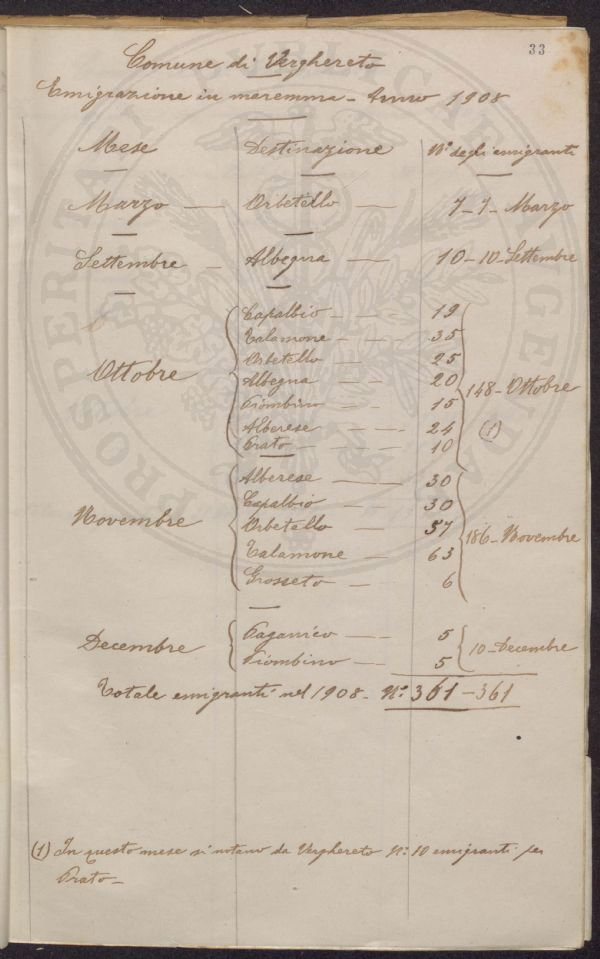 33
Comune di Verghereto
Emigrazione in maremma - Anno 1908
Mese Destinazione N° degli emigranti
Marzo — Orbetello — 7 - 7 - Marzo
Settembre — Albegna — 10 - 10 - Settembre
Ottobre
Capalbio - - - 19
Talamone - - - 35
Orbetello - - 25
Albegna - - 20
Piombino - - 15
Alberese - - - 24
Prato - - - - 10
148 - Ottobre
(1)
Novembre
Alberese — 30
Capalbio — 30
Orbetello — 57
Talamone — 63
Grosseto — 6
186 - Novembre
Decembre
Paganico — 5
Piombino — 5
10 - Decembre
Totale emigranti nel 1908 - N°. 361 - 361
(1) In questo mese si notano da Verghereto N°. 10 emigranti per
Prato -
PROSPERITATI PVBLICAE AVGENDAE